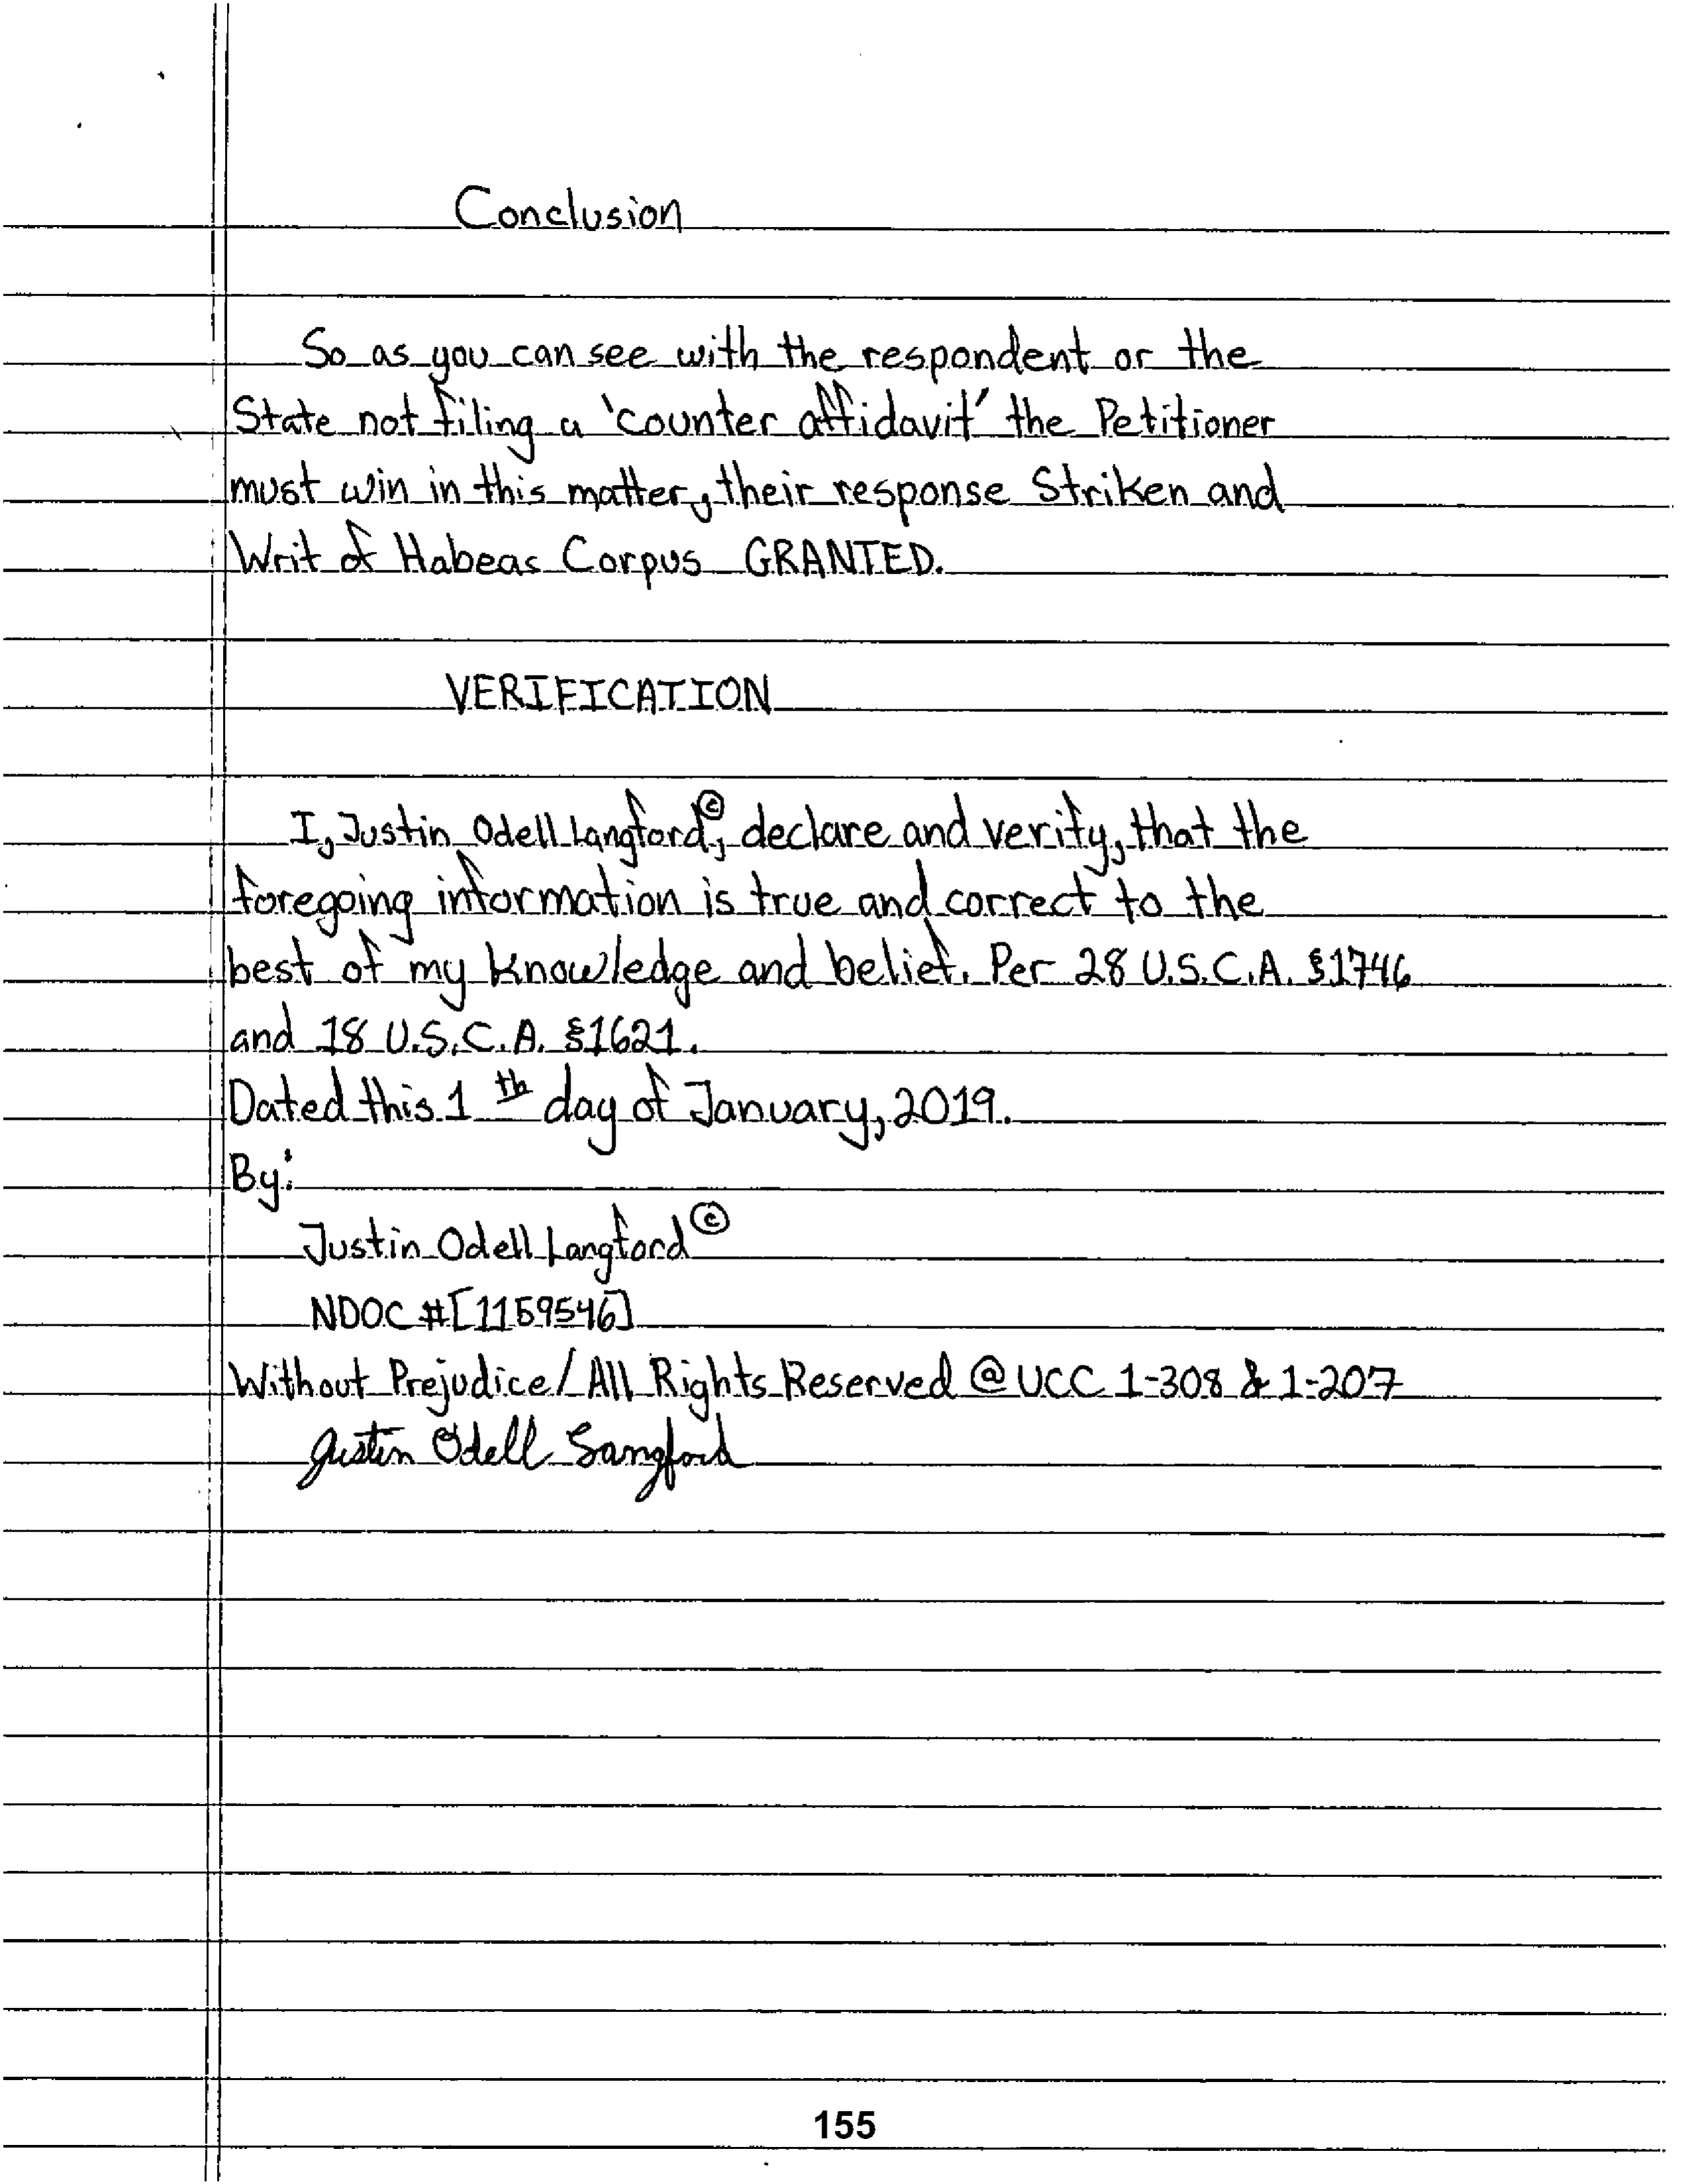 Conclusion
So as you can see with the respondent or the
State not filing a 'counter affidavit' the Petitioner
must win in this matter, their response Striken and
Writ of Habeas Corpus GRANTED.
VERIFICATION
I, Justin Odell Langford©, declare and verify, that the
foregoing information is true and correct to the
best of my knowledge and belief. Per 28 U.S.C.A. §1746
and 18 U.S.C.A. §1621.
Dated this 1th day of January, 2019.
By:
Justin Odell Langford©
NDOC #[1159546]
Without Prejudice/All Rights Reserved @ UCC 1-308 & 1-207
Justin Odell Langford
155